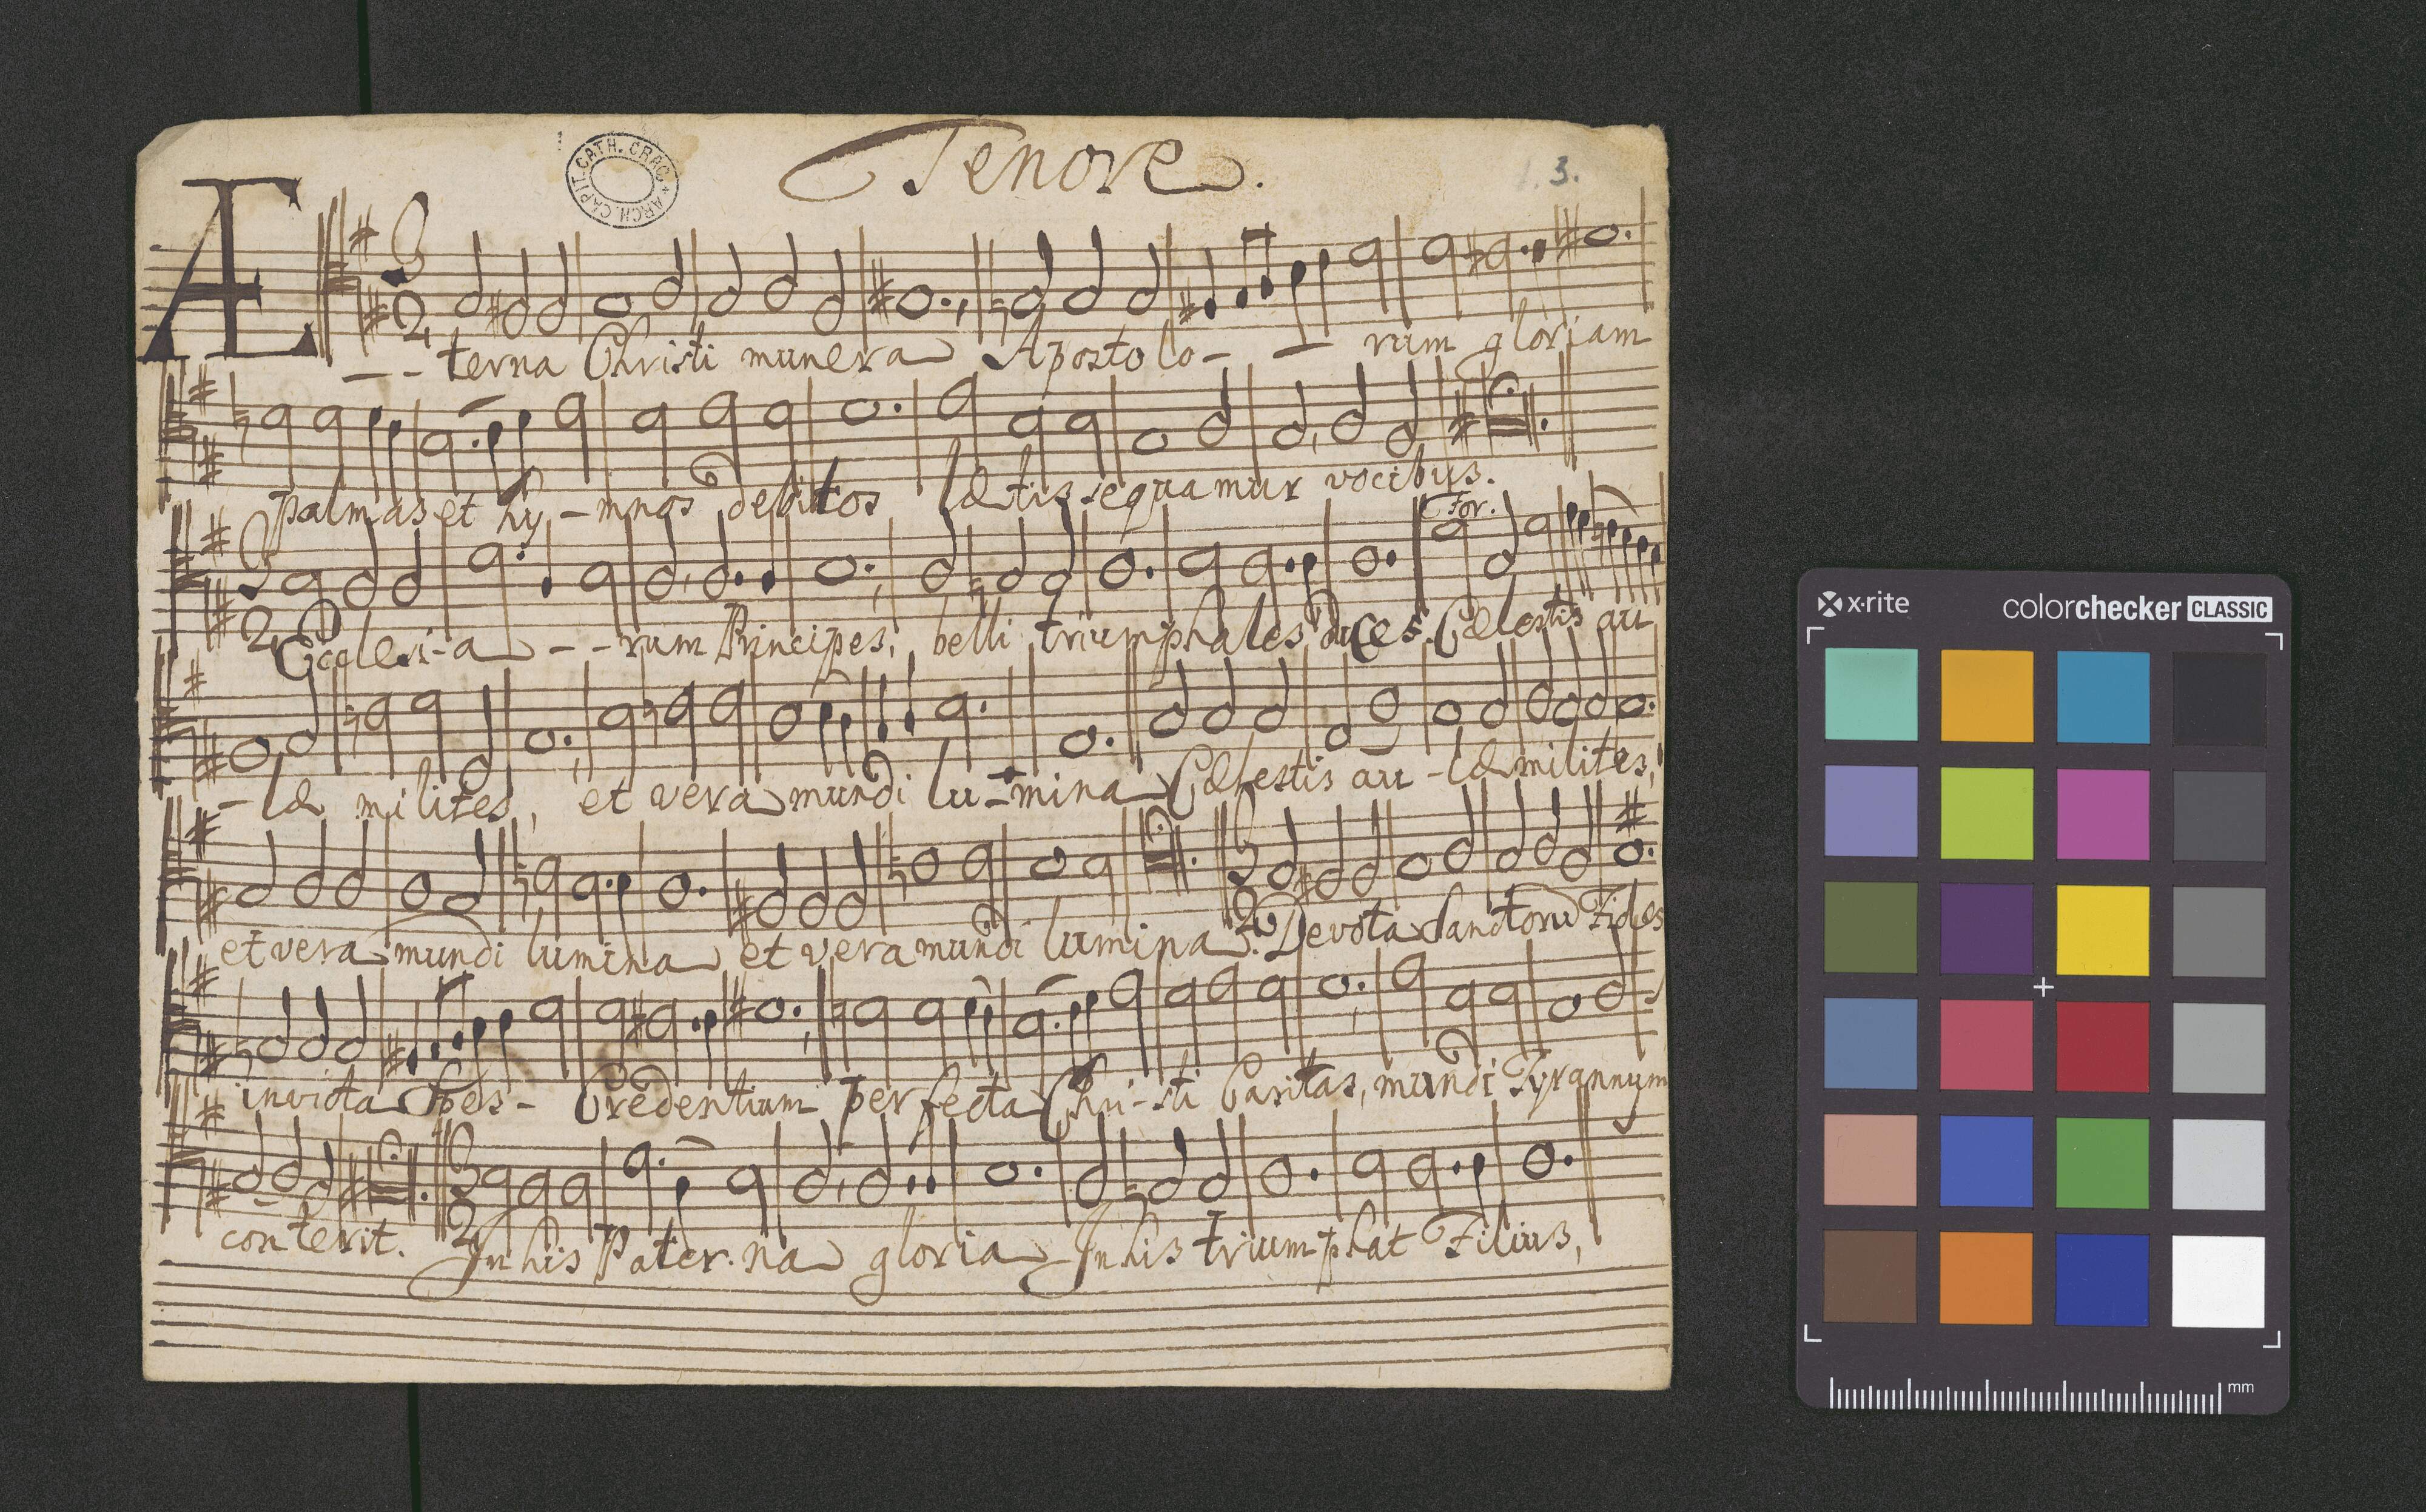 Tenore.
ARCH. CAPIT. CATH. CRAC.
3.
Æ
- - terna Christi munera Apostolo - - rum gloriam
palmas et hy - mnos debitos lætis sequamur vocibus.
For.
Ecclesi-a - - rum Principes, belli triumphales duces. Cœlestis au
- læ milites, et vera mundi lu - mina Cælestis au - læ milites,
et vera mundi lumina et vera mundi lumina. Devota Sanctorū Fides
invicta Spes - Credentium perfecta Chri-sti Caritas, mundi Tyrannum
conterit. In his Pater-na gloria In his triumphat Filius,
x·rite
colorchecker CLASSIC
mm